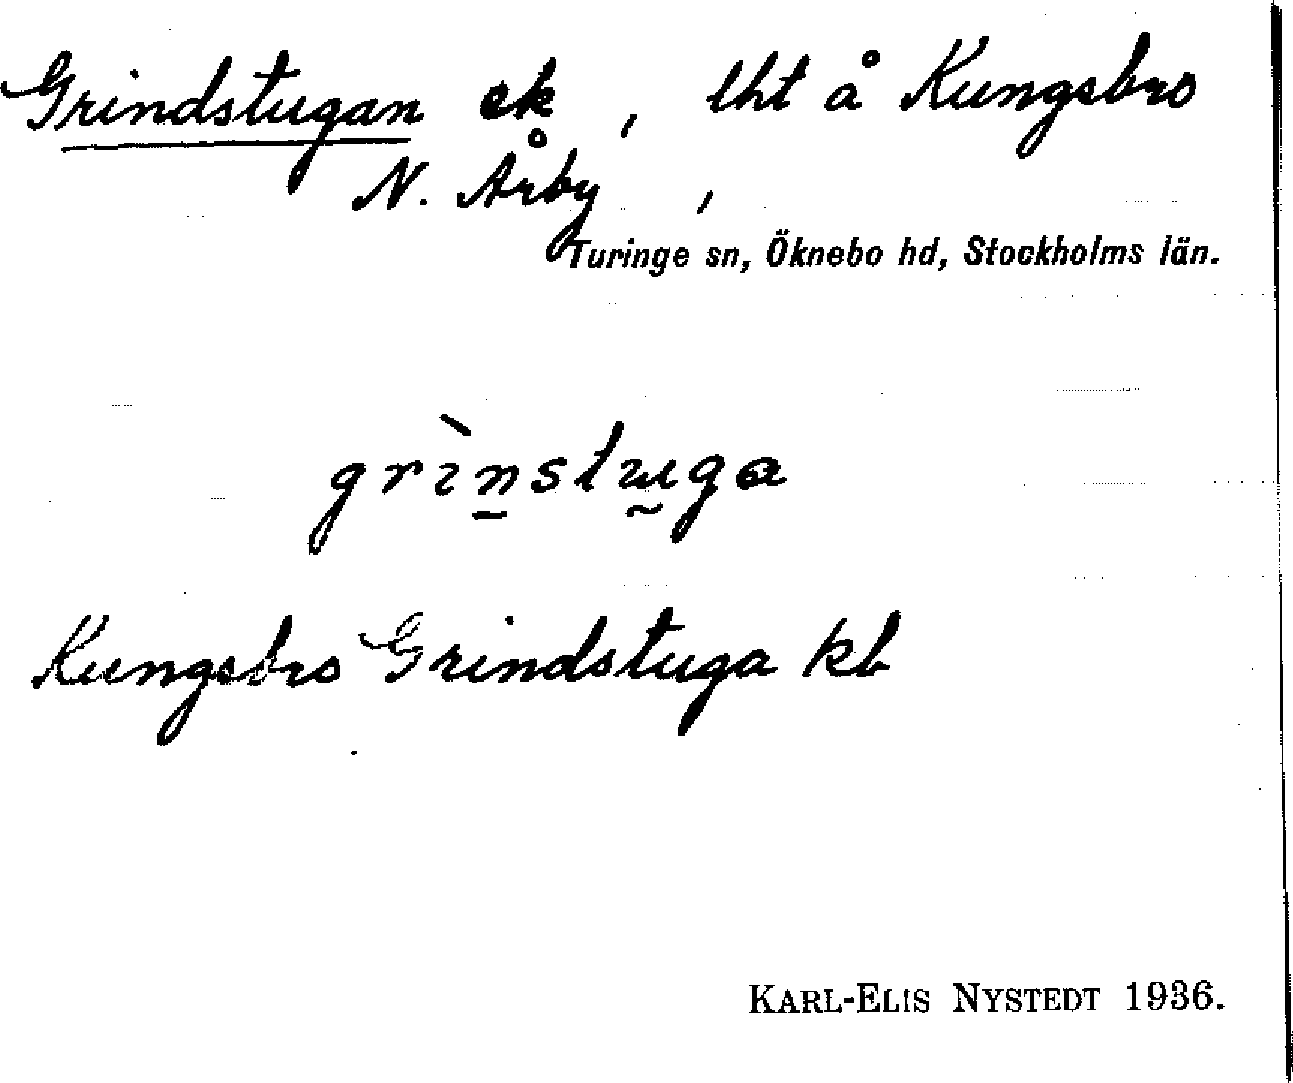 Grindstugan ek, lht å Kungsbro
N. Årby,
Turinge sn, Öknebo hd, Stockholms län.
grìn̠stṵga
Kungsbro Grindstuga kb
KARL-ELIS NYSTEDT 1936.